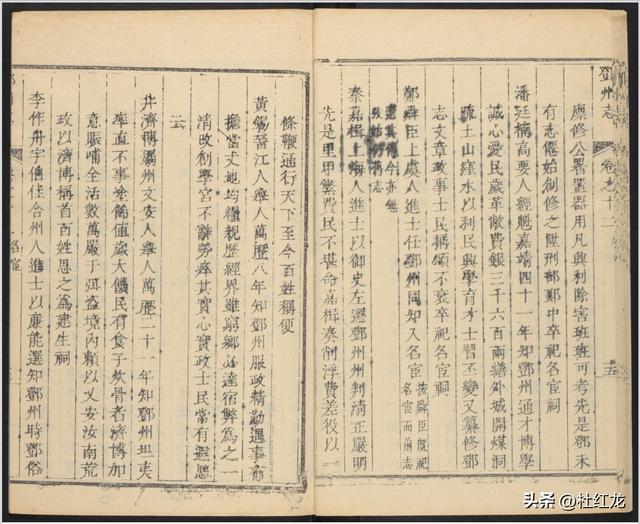 鄧州志
卷之十二
廪修公署置器用凡興利除害班班可考先是鄧未
有志儒始創修之陞刑部郎中卒祀名宦祠
潘廷楠高要人經魁嘉靖四十一年知鄧州通才博學
誠心愛民歲革敝費銀三千六百兩繕外城開煤洞
疏土山窪水以利民興學育才士習丕變又纂修鄧
志文章政事士民稱頌不衰卒祀名宦祠
鄭舜臣上虞人進士任鄧州同知入名宦
按舜臣既祀
名宦而前志
遺其傳今亦無
秦嘉楫上海人進士以御史左遷鄧州州判清正嚴明
先是里甲繁費民不堪命嘉楫奏削浮費差役以一
條鞭通行天下至今百姓稱便
黃錫晉江人舉人萬歷八年知鄧州服政精勤遇事
擔當丈地均糧親歷經界雖窮鄉必達宿弊為之一
清改創學宮不辭勞瘁其實心實政士民當有遐思
云
井濟博霸州文安人舉人萬歷二十一年知鄧州坦夷
率直不事塗飾值歲大饑民有食子炊骨者濟博加
意賑哺全活數萬嚴于弭盗境內賴以乂安汝南荒
政以濟博稱首百姓思之為建生祠
李作舟宇
合州人進士以廉能選知鄧州時鄧俗
名宦
头条 @杜红龙